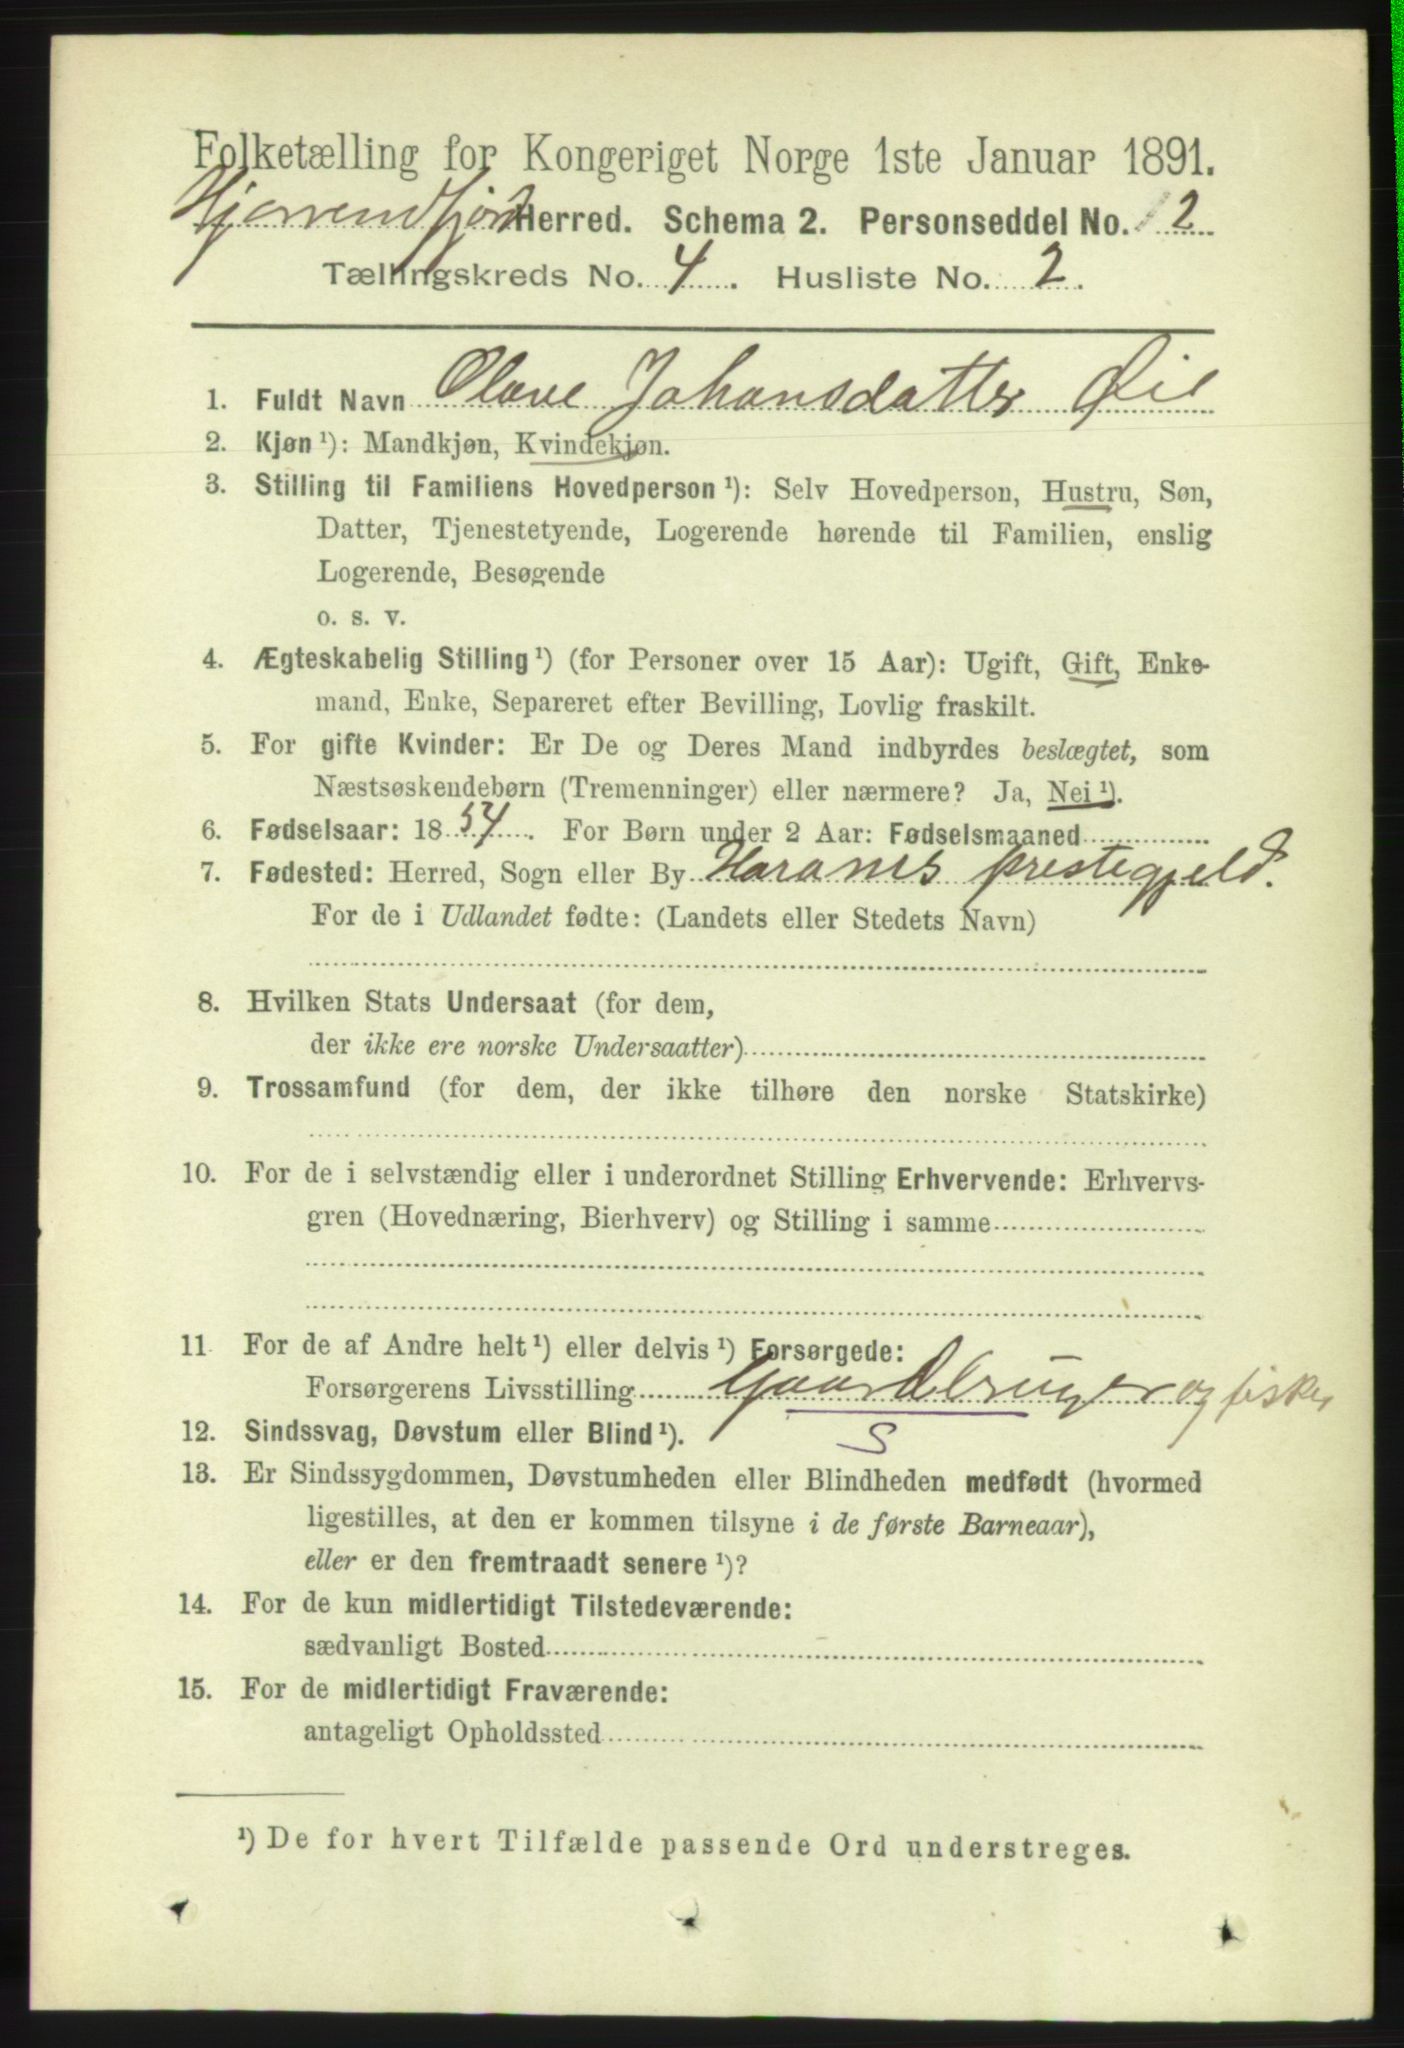 Folketælling for Kongeriget Norge 1ste Januar 1891.
Hjørrendfjord Herred. Schema 2. Personseddel No. 2
Tællingskreds No. 4. Husliste No. 2.
1. Fuldt Navn Olave Johansdatter Øie
2. Kjøn ¹): Mandkjøn, Kvindekjøn.
3. Stilling til Familiens Hovedperson ¹): Selv Hovedperson, Hustru, Søn,
Datter, Tjenestetyende, Logerende hørende til Familien, enslig
Logerende, Besøgende
o. s. v.
4. Ægteskabelig Stilling ¹) (for Personer over 15 Aar): Ugift, Gift, Enke-
mand, Enke, Separeret efter Bevilling, Lovlig fraskilt.
5. For gifte Kvinder: Er De og Deres Mand indbyrdes beslægtet, som
Næstsøskendebørn (Tremenninger) eller nærmere? Ja, Nei ¹).
6. Fødselsaar: 1854. For Børn under 2 Aar: Fødselsmaaned
7. Fødested: Herred, Sogn eller By Harams prestegjeld.
For de i Udlandet fødte: (Landets eller Stedets Navn)
8. Hvilken Stats Undersaat (for dem,
der ikke ere norske Undersaatter)
9. Trossamfund (for dem, der ikke tilhøre den norske Statskirke)
10. For de i selvstændig eller i underordnet Stilling Erhvervende: Erhvervs-
gren (Hovednæring, Bierhverv) og Stilling i samme
11. For de af Andre helt ¹) eller delvis ¹) Forsørgede:
Forsørgerens Livsstilling Gaardbruger og fisker
S
12. Sindssvag, Døvstum eller Blind ¹).
13. Er Sindssygdommen, Døvstumheden eller Blindheden medfødt (hvormed
ligestilles, at den er kommen tilsyne i de første Barneaar),
eller er den fremtraadt senere ¹)?
14. For de kun midlertidigt Tilstedeværende:
sædvanligt Bosted
15. For de midlertidigt Fraværende:
antageligt Opholdssted
¹) De for hvert Tilfælde passende Ord understreges.